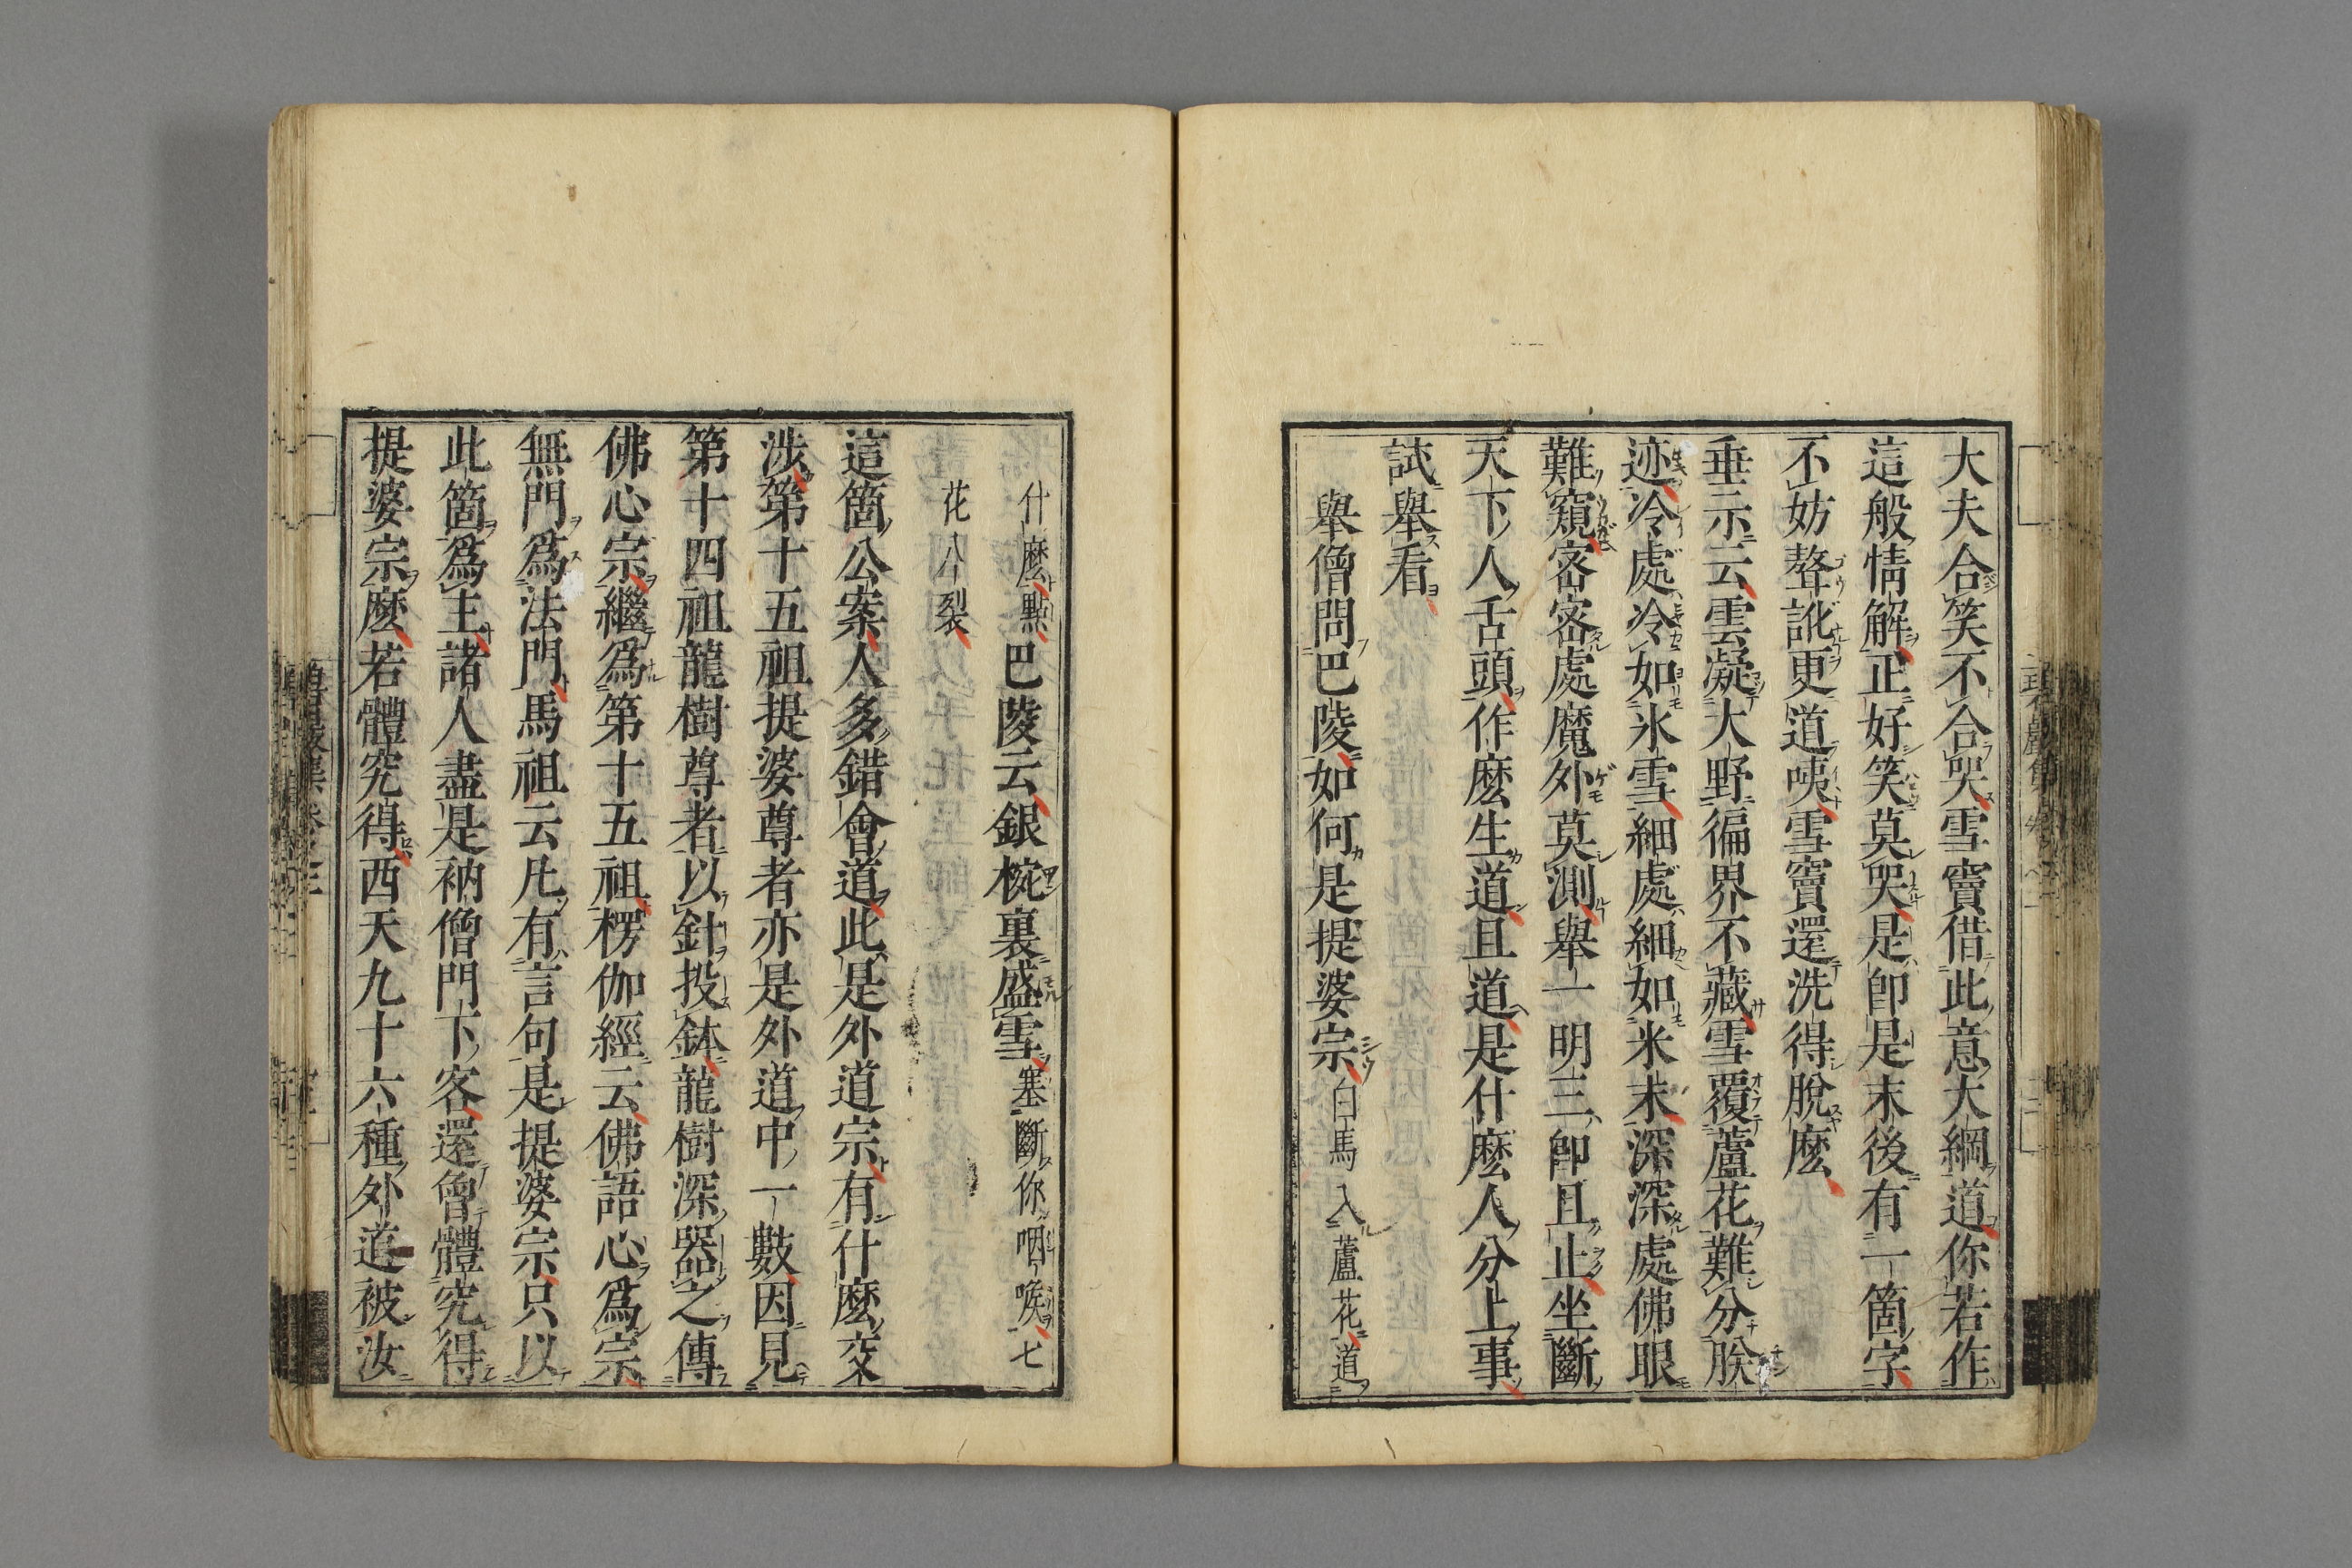 大夫合笑不合哭雪竇借此意大綱道你若作
這般情解正好笑莫哭是卽是末後有一箇字
不妨聱訛更道咦雪竇還洗得脫麽
垂示云雲凝大野徧界不藏雪覆蘆花難分朕
迹冷處冷如氷雪細處細如米末深深處佛眼
難窺密密處魔外莫測舉一明三卽且止坐斷
天下人舌頭作麽生道且道是什麽人分上事
試舉看
舉僧問巴陵如何是提婆宗白馬入蘆花道
什麽點巴陵云銀椀裏盛雪塞斷你咽喉七
花八裂
這箇公案人多錯會道此是外道宗有什麽交
涉第十五祖提婆尊者亦是外道中一數因見
第十四祖龍樹尊者以針投鉢龍樹深器之傳
佛心宗繼爲第十五祖楞伽經云佛語心爲宗
無門爲法門馬祖云凡有言句是提婆宗只以
此箇爲主諸人盡是衲僧門下客還曾體究得
提婆宗麽若體究得西天九十六種外道被汝